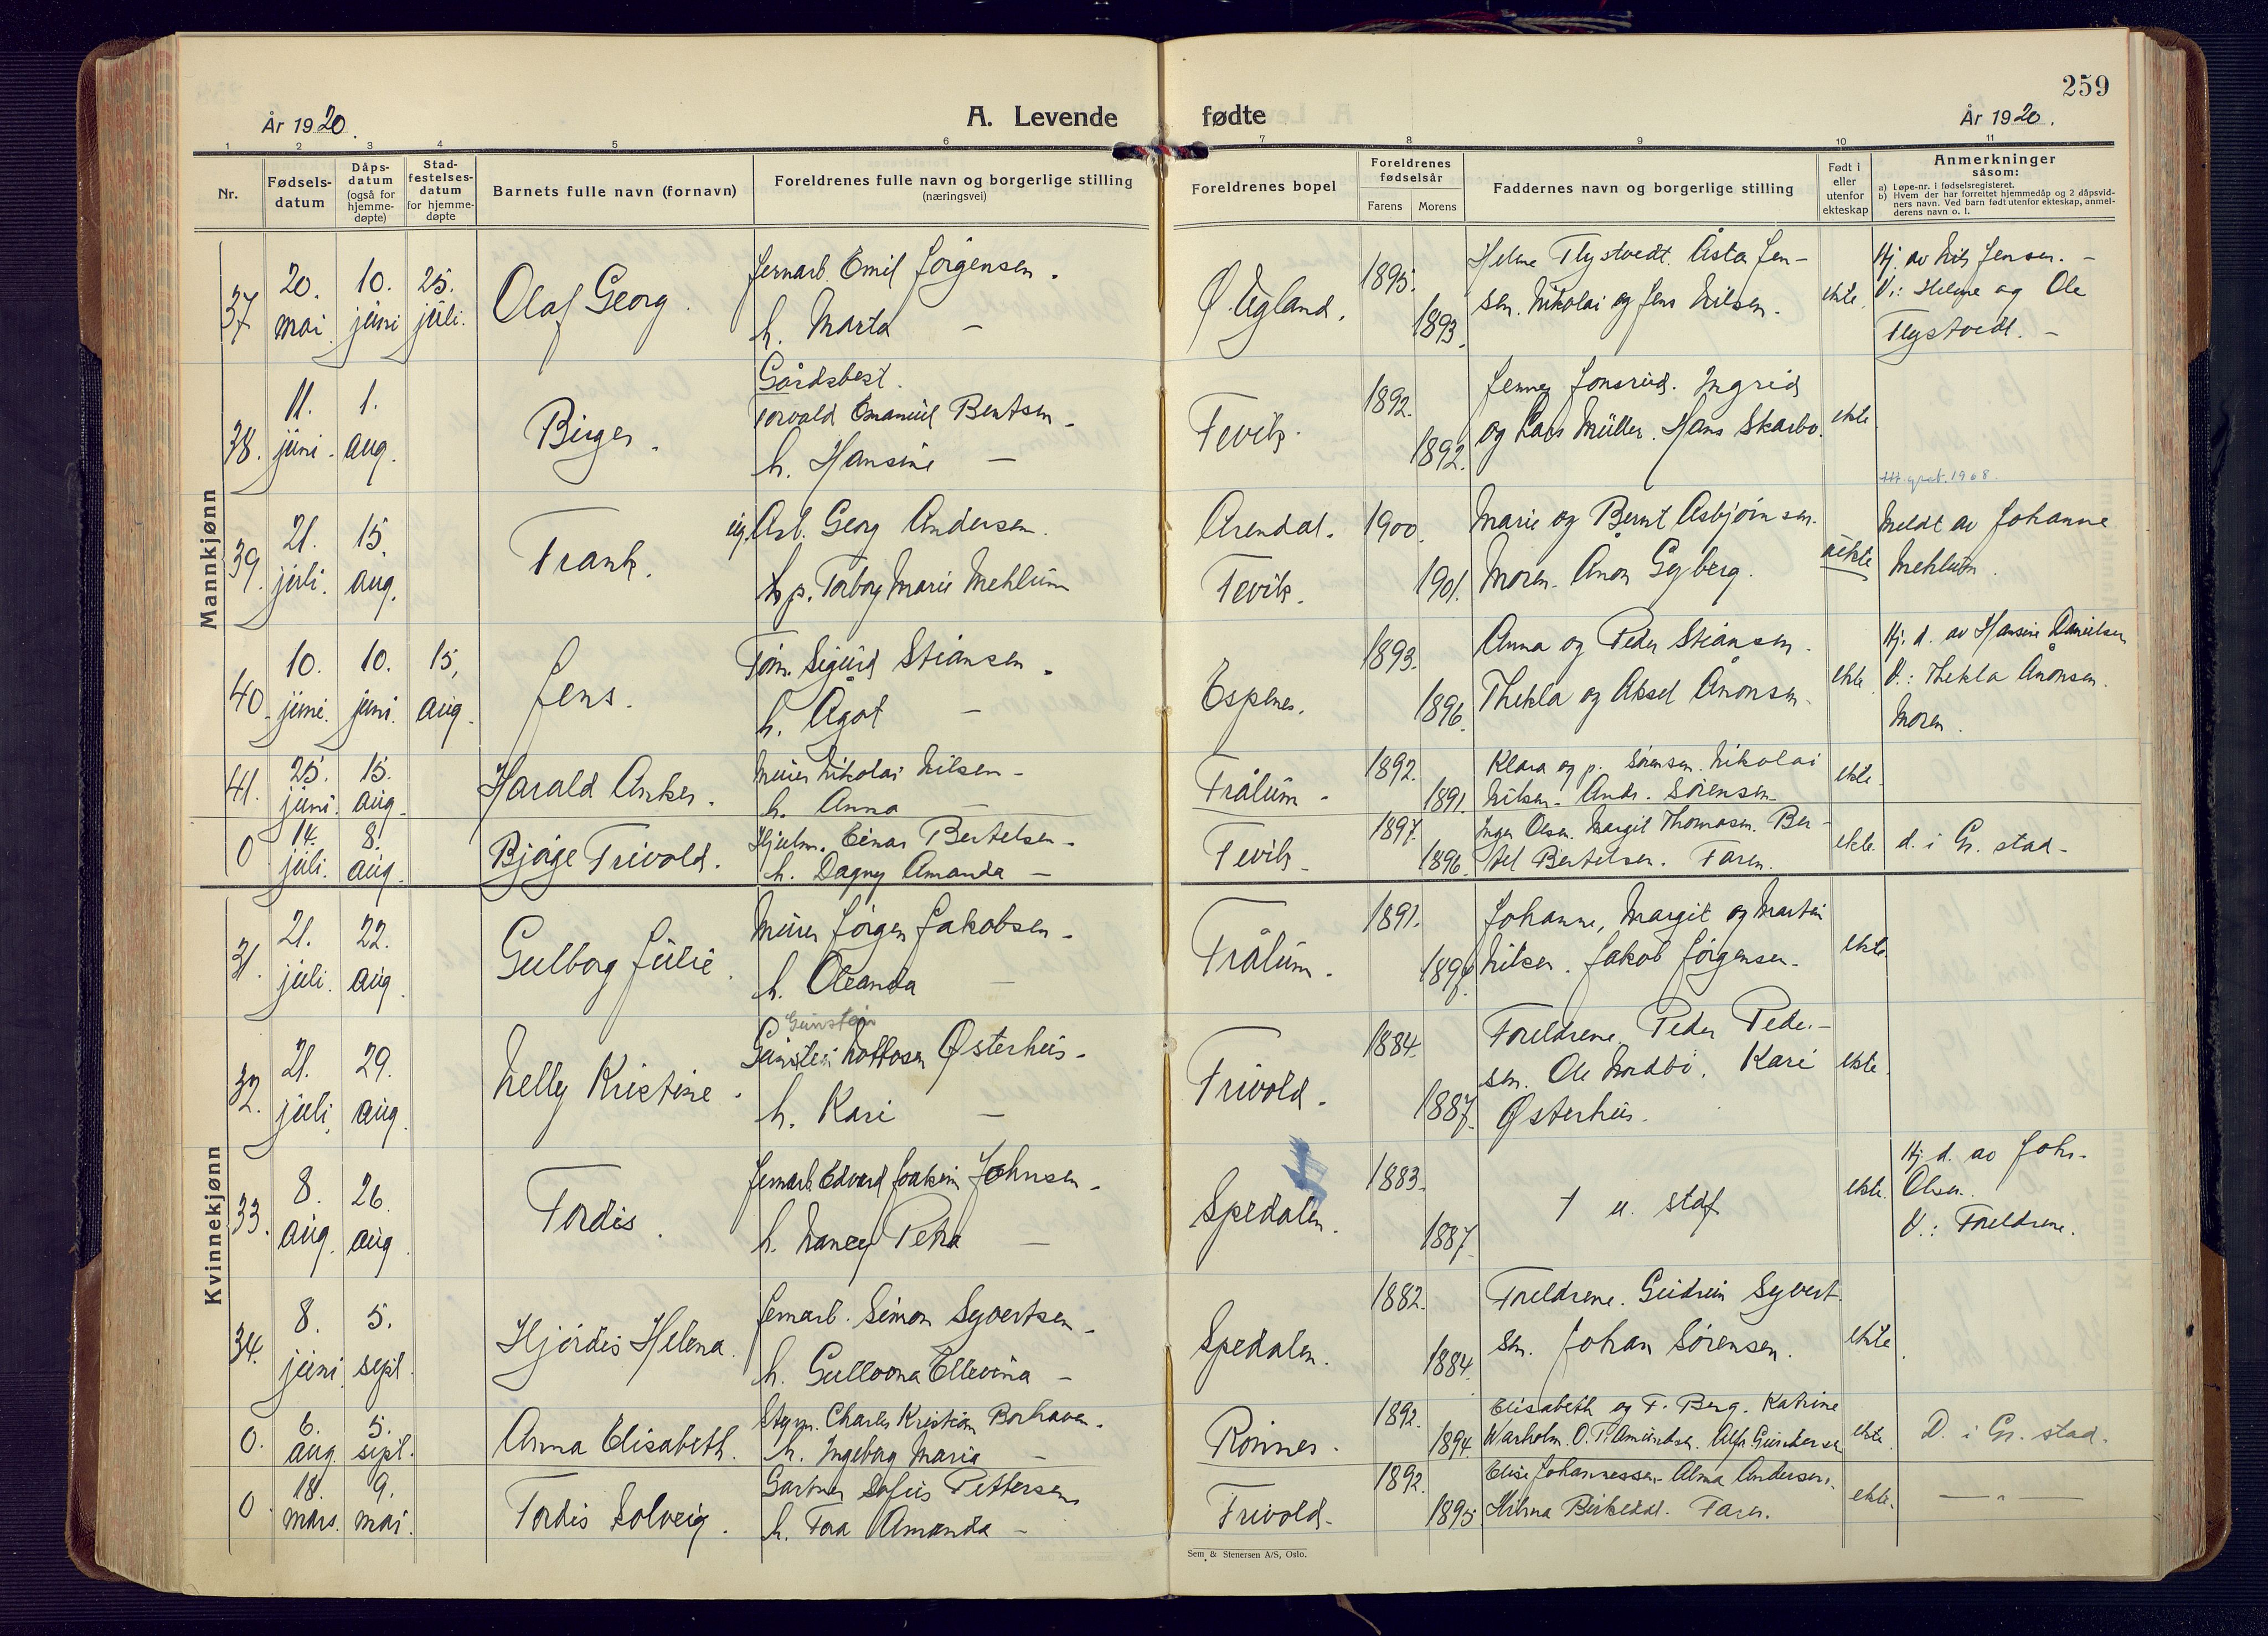 259
År 1920.
A. Levende fødte
År 1920.
1 2 3 4 5 6 7 8 9 10 11
Nr.
Fødsels-
datum
Dåps-
datum
(også for
hjemme-
døpte)
Stad-
festelses-
datum
for hjemme-
døpte
Barnets fulle navn (fornavn)
Foreldrenes fulle navn og borgerlige stilling
(næringsvei)
Foreldrenes bopel
Foreldrenes
fødselsår
Farens Morens
Faddernes navn og borgerlige stilling
Født i
eller
utenfor
ekteskap
Anmerkninger
såsom:
a) Løpe-nr. i fødselsregisteret.
b) Hvem der har forrettet hjemmedåp og 2 dåpsvid-
ners navn. Ved barn født utenfor ekteskap, anmel-
derens navn o. l.
Mannkjønn
37 20. mai 10. juni 25. juli. Olaf Georg.
Jernarb. Emil Jørgensen.
h. Marta —
Ø. Ugland. 1895. 1893.
Helene Flystvedt. Åsta Jen-
sen. Nikolai og Jens Nilsen.
ekte
Hj. av Nils Jensen. -
V.: Helene og Ole
Flystvedt. -
38. 11. juni. 1. aug. Birger.
Gårdsbest.
Torvald Emanuel Bentsen -
h. Hansine —
Fevik. 1892. 1892.
Jenney Jonsrud. Ingrid
og Lars Müller. Hans Skarbo.
ekte
39. 21. juli. 15. aug. Frank.
ug. Arb. Georg Andersen.
p. Torborg Marie Mehlum
Arendal. 1900.
Fevik. 1901.
Marie og Bernt Asbjørnsen.
Moren. Anon Gyberg.
uekte
gret. 1968.
Meldt av Johanne
Mehlum.
40. 10. juni. 10. juni. 15. aug. Jens.
Tøm. Sigurd Stiansen.
h. Ågot —
Espenes. 1893. 1896.
Anna og Peder Stiansen.
Thekla og Aksel Ånonsen.
ekte
Hj. d. av Hansine Danielsen
V.: Thekla Ånonsen.
Moren.
41. 25. juni. 15. aug. Harald Anker.
Murer Nikolai Nilsen -
h. Anna —
Frålum. 1892. 1891.
Klara og p. Sørensen. Nikolai
Nilsen. Andr. Sørensen.
ekte.
0 14. juli. 8. aug. Bjørge Frivold.
Hjulm. Einar Bertelsen.
h. Dagny Amanda —
Fevik. 1897. 1896.
Inger Olsen. Margit Thomasen. Ber-
tel Bertelsen. Faren.
ekte. d. i Gr. stad.
Kvinnekjønn
31. 21. juli. 22. aug. Gulborg Julie.
Murer Jørgen Jakobsen -
h. Oleanda —
Frålum. 1891.
Johanne, Margit og Martin
Nilsen. Jakob Jørgensen.
ekte.
32. 21. juli. 29. aug. Nelly Kristine.
Gunstein
Gunstein Østerhus.
h. Kari —
Frivold. 1884. 1887.
Foreldrene. Peder Peder-
sen. Ole Nordbø. Kari
Østerhus.
ekte.
33. 8. aug. 26. aug. Tordis.
Jernarb. Edvard Joakim Johnsen.
h. Nancy Petra —
Spedalen. 1883. 1887.
† u. stdf
ekte.
Hj. d. av Johs.
Olsen.
V.: Foreldrene.
34. 8. juni. 5. sept. Hjørdis Helena.
Jernarb. Simon Syvertsen.
h. Gullovna Ellevina —
Spedalen. 1882. 1884.
Foreldrene. Gudrun Syvert-
sen. Johan Sørensen.
ekte.
0. 6. aug. 5. sept. Anna Elisabeth.
Styrm. Charles Kristian Borhaven.
h. Ingeborg Maria —
Rønnes. 1892. 1894.
Elisabeth og F. Berg. Katrine
Warholm. O. T. Amundsen. Alfr. Gundersen
ekte. D. i Gr. stad.
0 18. mars. 9. mai. Tordis Solveig.
Gartner Sofus Pettersen
h. Tora Amanda —
Frivold. 1892. 1895.
Elise Johannessen. Alma Andersen.
Hilma Birkedal. Faren.
ekte. — " —
Sem & Stenersen A/S, Oslo.